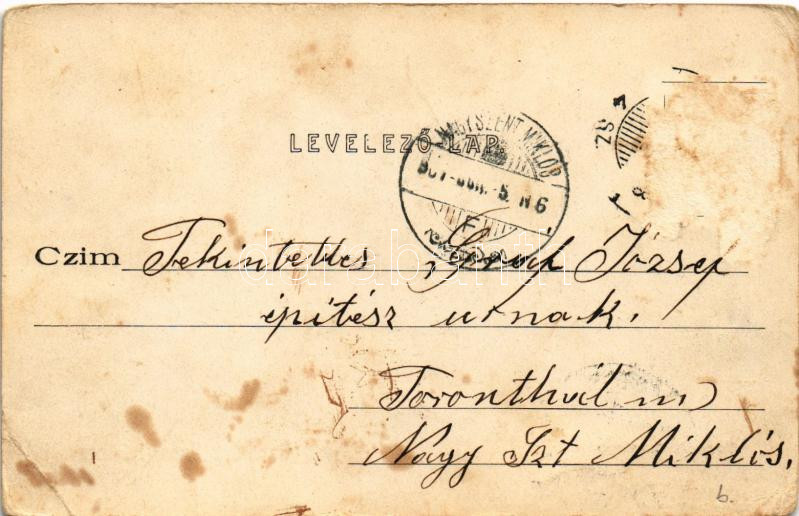 LEVELEZŐ LAP.
NAGYSZENT MIKLÓS
Czim Tekintettes József
építész urnak.
Toronthál m
Nagy Szt Miklós.
b.